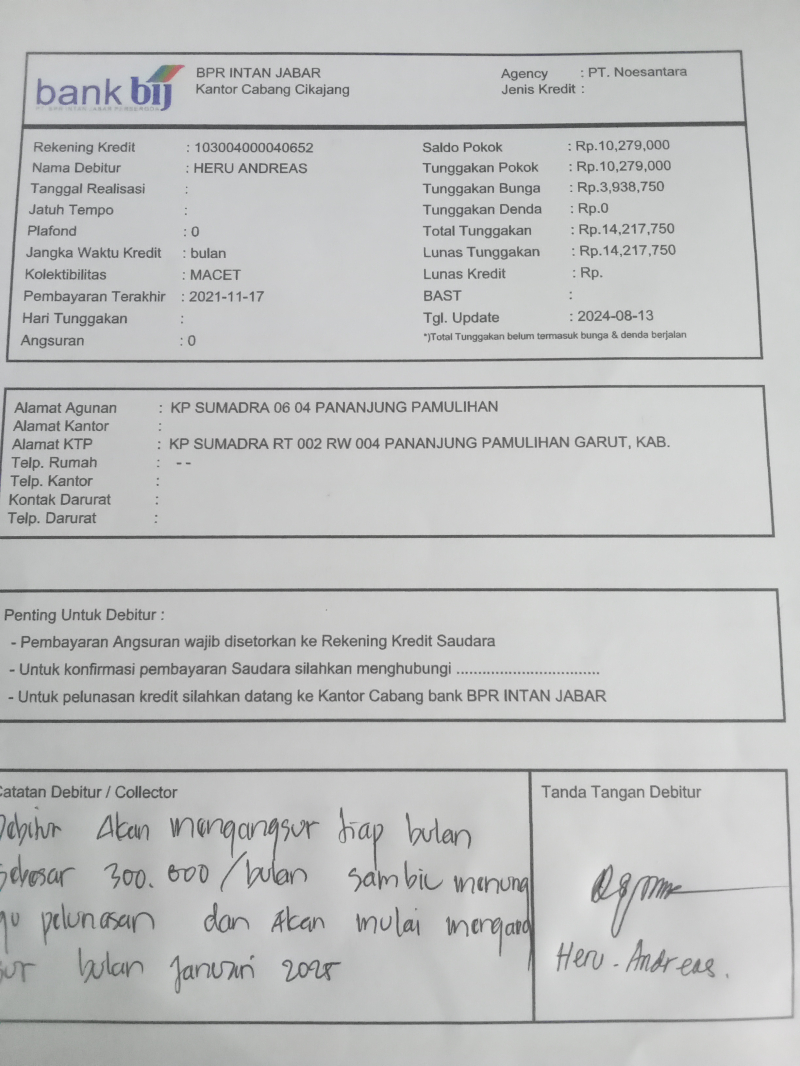 bank bij
BPR INTAN JABAR
Kantor Cabang Cikajang
Agency : PT. Noesantara
Jenis Kredit :
Rekening Kredit : 103004000040652
Nama Debitur : HERU ANDREAS
Tanggal Realisasi :
Jatuh Tempo :
Plafond : 0
Jangka Waktu Kredit : bulan
Kolektibilitas : MACET
Pembayaran Terakhir : 2021-11-17
Hari Tunggakan :
Angsuran : 0
Saldo Pokok : Rp.10,279,000
Tunggakan Pokok : Rp.10,279,000
Tunggakan Bunga : Rp.3,938,750
Tunggakan Denda : Rp.0
Total Tunggakan : Rp.14,217,750
Lunas Tunggakan : Rp.14,217,750
Lunas Kredit : Rp.
BAST :
Tgl. Update : 2024-08-13
*)Total Tunggakan belum termasuk bunga & denda berjalan
Alamat Agunan : KP SUMADRA 06 04 PANANJUNG PAMULIHAN
Alamat Kantor :
Alamat KTP : KP SUMADRA RT 002 RW 004 PANANJUNG PAMULIHAN GARUT, KAB.
Telp. Rumah : --
Telp. Kantor :
Kontak Darurat :
Telp. Darurat :
Penting Untuk Debitur :
- Pembayaran Angsuran wajib disetorkan ke Rekening Kredit Saudara
- Untuk konfirmasi pembayaran Saudara silahkan menghubungi .................................
- Untuk pelunasan kredit silahkan datang ke Kantor Cabang bank BPR INTAN JABAR
Catatan Debitur / Collector
Debitur Akan mengangsur tiap bulan
Sebesar 300.000/bulan sambil menung
gu pelunasan dan Akan mulai mengang
sur bulan Januari 2025
Tanda Tangan Debitur
Heru. Andreas.